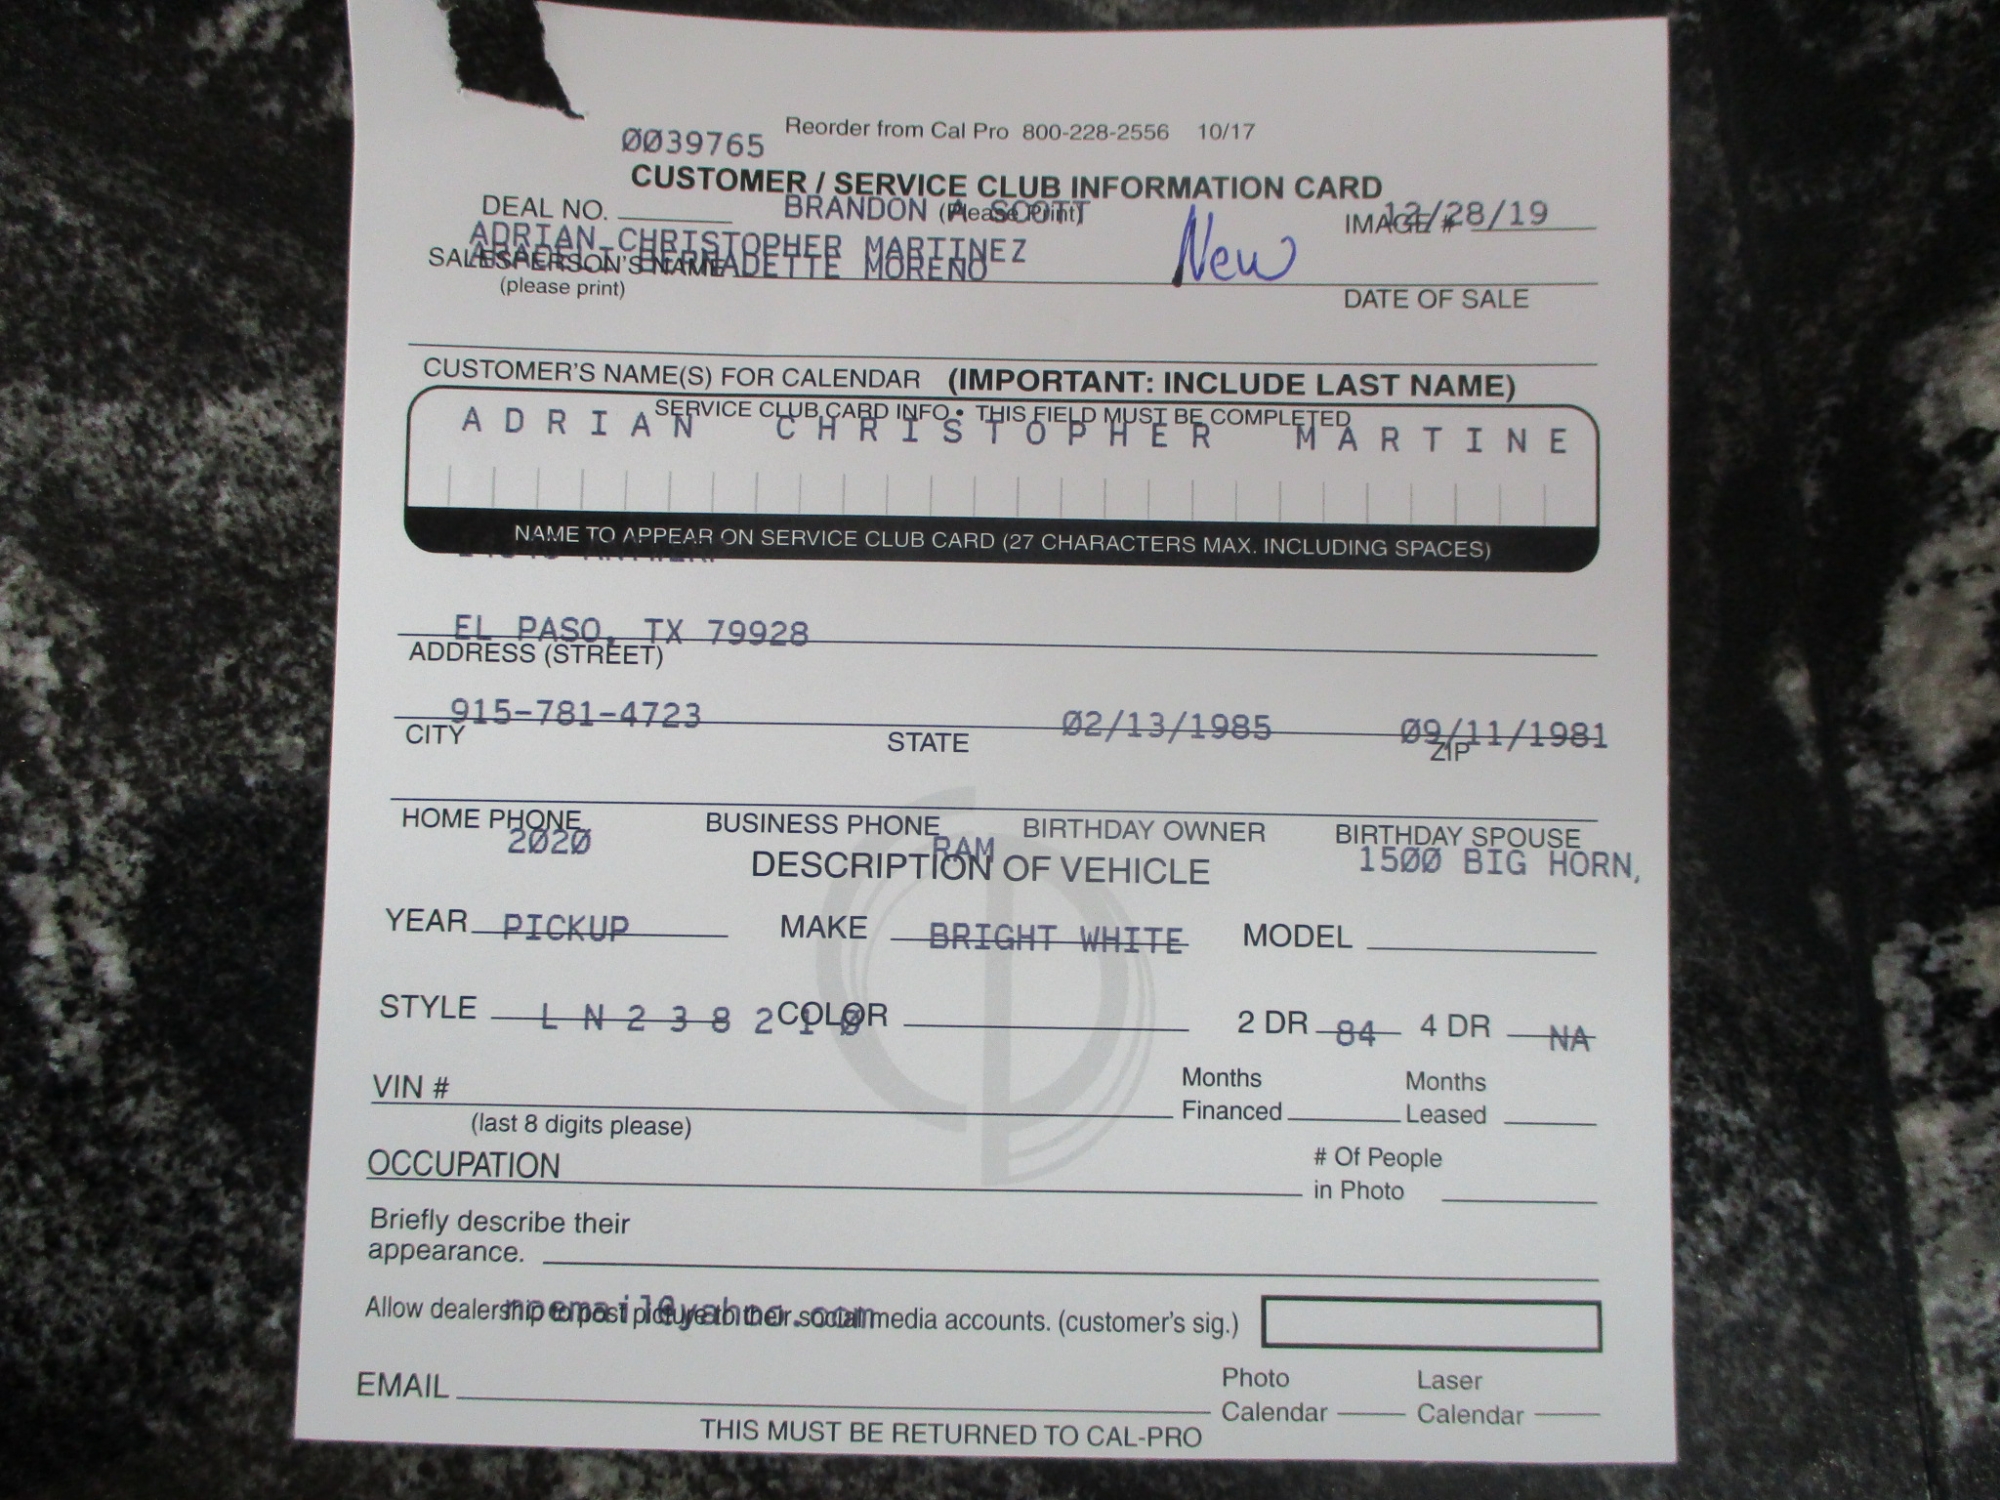 Reorder from Cal Pro 800-228-2556 10/17
0039765
CUSTOMER / SERVICE CLUB INFORMATION CARD
DEAL NO. BRANDON A SCOTT (Please Print) IMAGE # 12/28/19
ADRIAN CHRISTOPHER MARTINEZ New
SALESPERSON'S NAME BERNADETTE MORENO
(please print) DATE OF SALE
CUSTOMER'S NAME(S) FOR CALENDAR (IMPORTANT: INCLUDE LAST NAME)
SERVICE CLUB CARD INFO • THIS FIELD MUST BE COMPLETED
ADRIAN CHRISTOPHER MARTINE
NAME TO APPEAR ON SERVICE CLUB CARD (27 CHARACTERS MAX. INCLUDING SPACES)
EL PASO, TX 79928
ADDRESS (STREET)
915-781-4723 02/13/1985 09/11/1981
CITY STATE ZIP
HOME PHONE BUSINESS PHONE BIRTHDAY OWNER BIRTHDAY SPOUSE
2020 RAM 1500 BIG HORN,
DESCRIPTION OF VEHICLE
YEAR PICKUP MAKE BRIGHT WHITE MODEL
STYLE LN238210 COLOR 2 DR 84 4 DR NA
VIN # Months Financed Months Leased
(last 8 digits please)
OCCUPATION # Of People in Photo
Briefly describe their
appearance.
Allow dealership to post picture to their social media accounts. (customer's sig.)
noemail@yahoo.com
EMAIL Photo Calendar Laser Calendar
THIS MUST BE RETURNED TO CAL-PRO